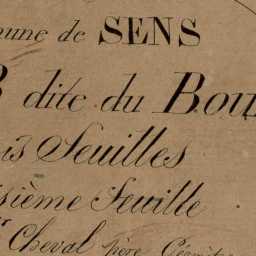 mune de SENS
B dite du Bou
is Feuilles
sième Feuille
Cheval père Géomètre